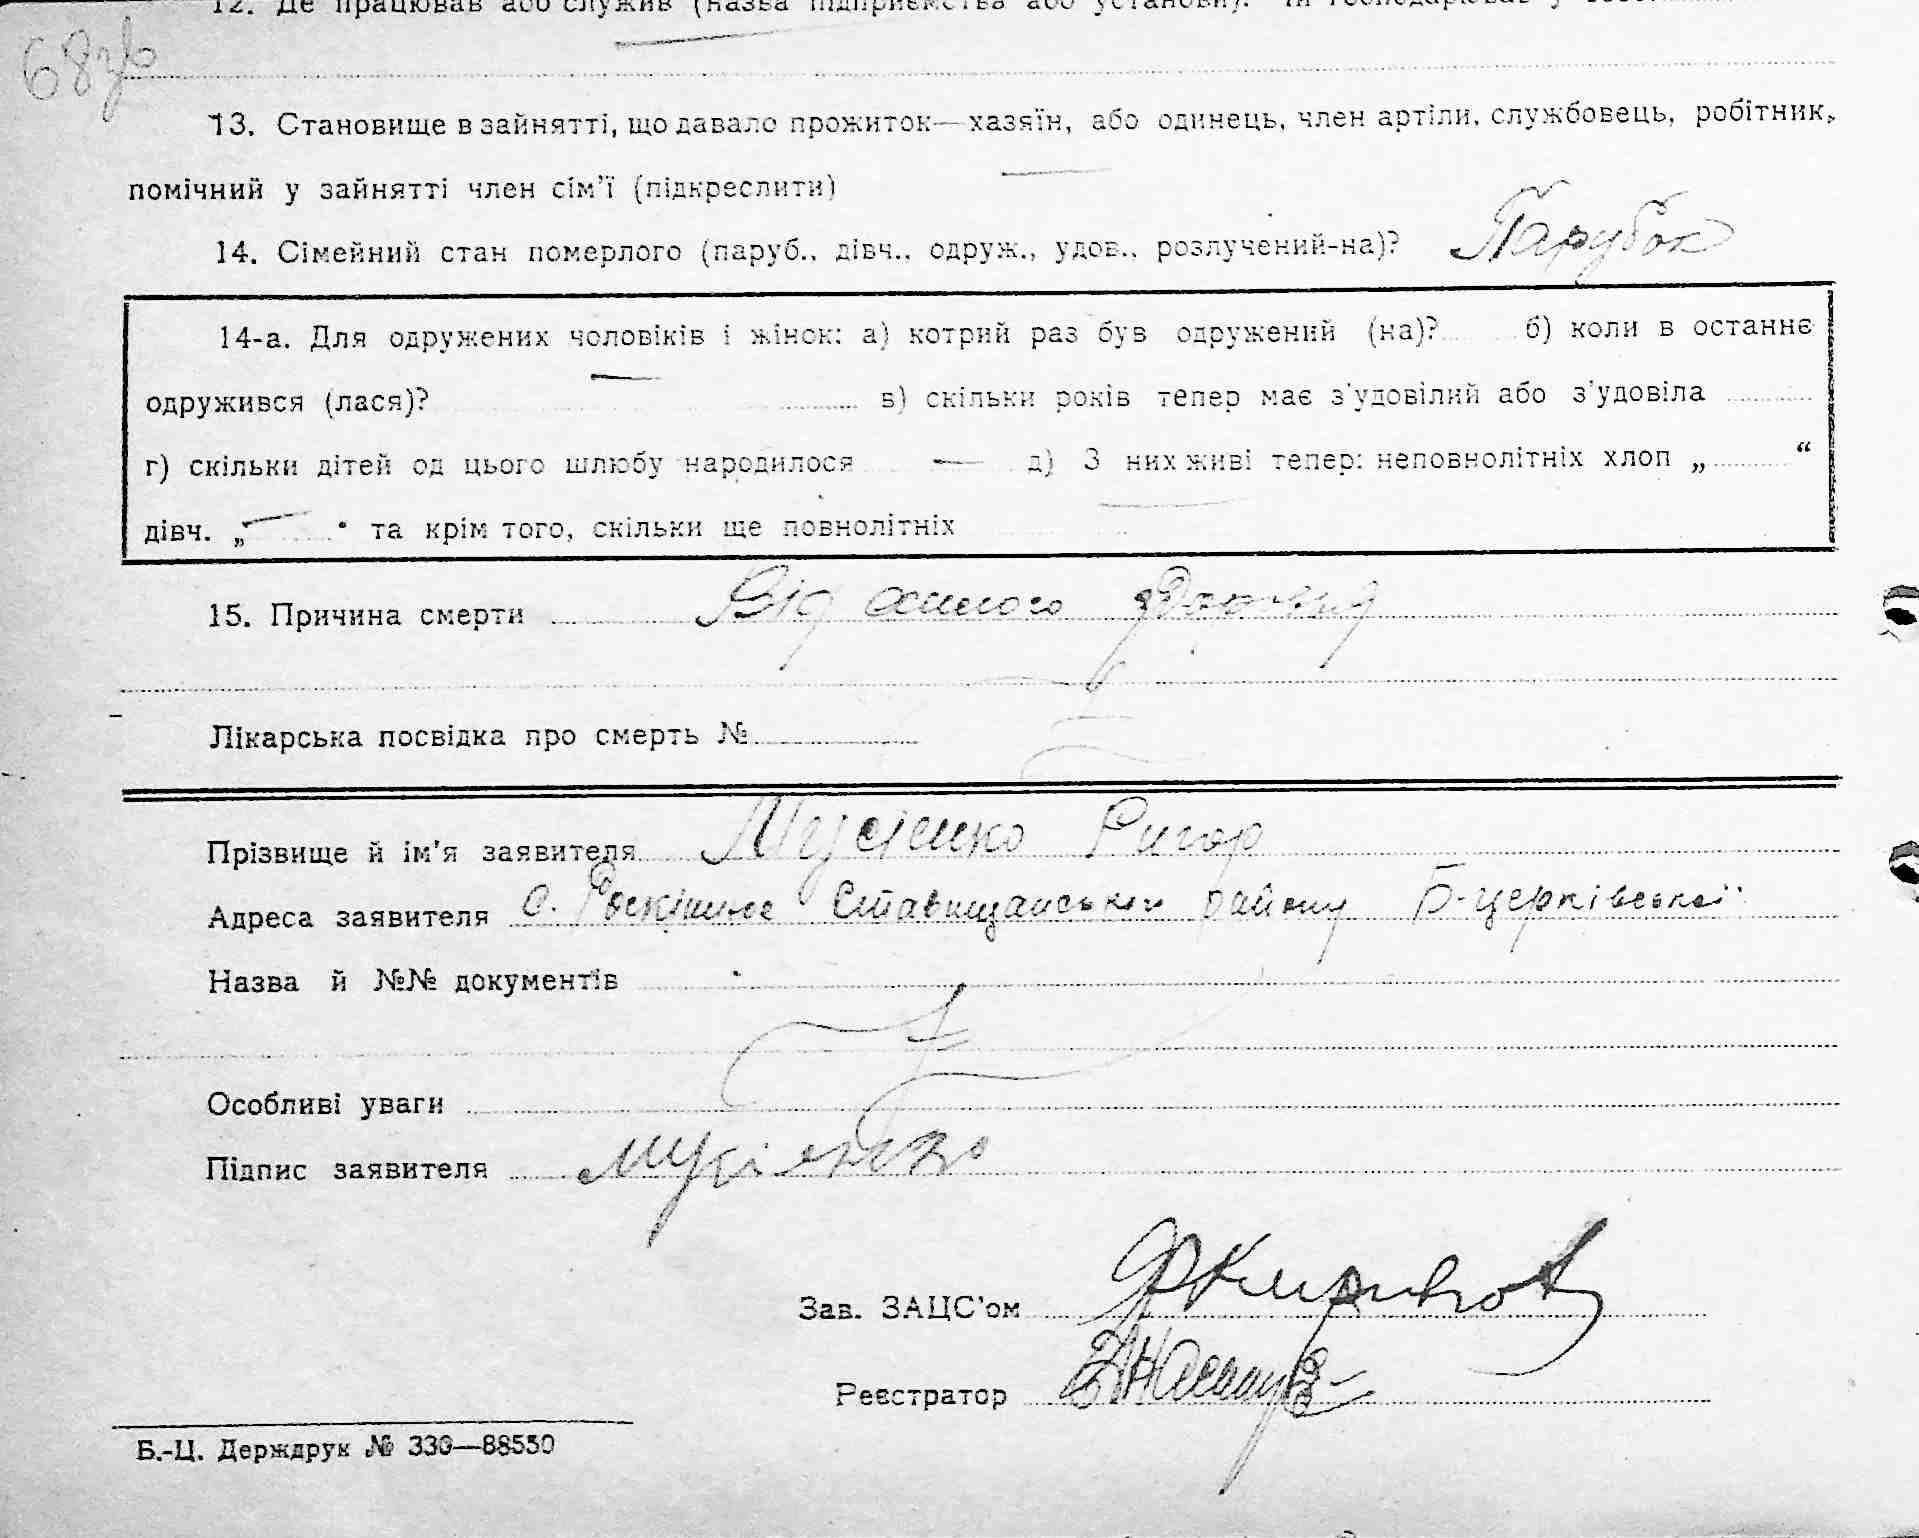 12. Де працював або служив (назва підприємства або установи). Чи господарював у
68зв
13. Становище в зайнятті, що давало прожиток—хазяїн, або одинець, член артіли, службовець, робітник,
помічний у зайнятті член сім'ї (підкреслити)
14. Сімейний стан померлого (паруб., дівч., одруж., удов., розлучений-на)? Парубок
14-а. Для одружених чоловіків і жінок: а) котрий раз був одружений (на)? б) коли в останнє
одружився (лася)? в) скільки років тепер має з'удовілий або з'удовіла
г) скільки дітей од цього шлюбу народилося — д) З них живі тепер: неповнолітніх хлоп „ “
дівч. „ — “ та крім того, скільки ще повнолітніх
15. Причина смерти Від хилого здоровья
Лікарська посвідка про смерть №
Прізвище й ім'я заявителя Мусієнко Ригор
Адреса заявителя с. Ставищанського району Б-церківської
Назва й №№ документів
Особливі уваги
Підпис заявителя Мусіенко
Зав. ЗАЦС'ом
Реєстратор
Б.-Ц. Держдрук № 330—88550